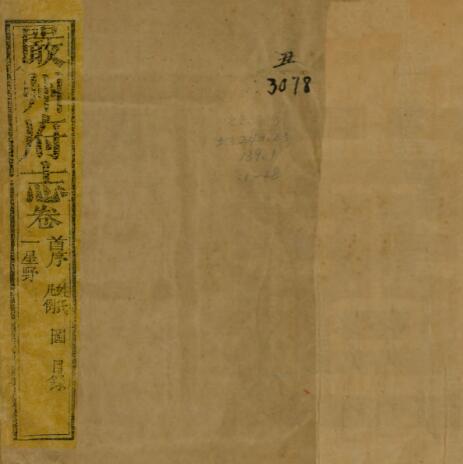 嚴州府志卷
首序 姓氏 凡例 圖 目錄
一星野
丑
3078
139.1
1-48